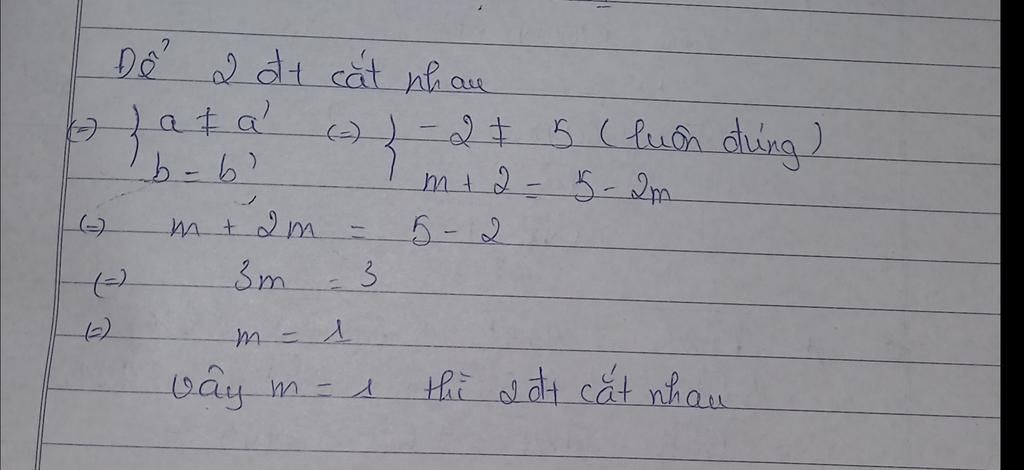 Để 2 đt cắt nhau
(=) { a ≠ a' (=) { -2 ≠ 5 (luôn đúng)
b = b' m + 2 = 5 - 2m
(=) m + 2m = 5 - 2
(=) 3m = 3
(=) m = 1
Vậy m = 1 thì 2 đt cắt nhau